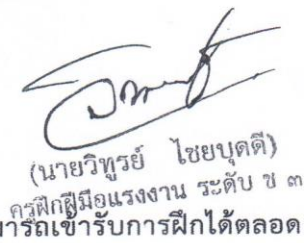 (นายวิทูรย์ ไชยบุดดี)
ครูฝึกฝีมือแรงงาน ระดับ ช ๓
มารถเข้ารับการฝึกได้ตลอด